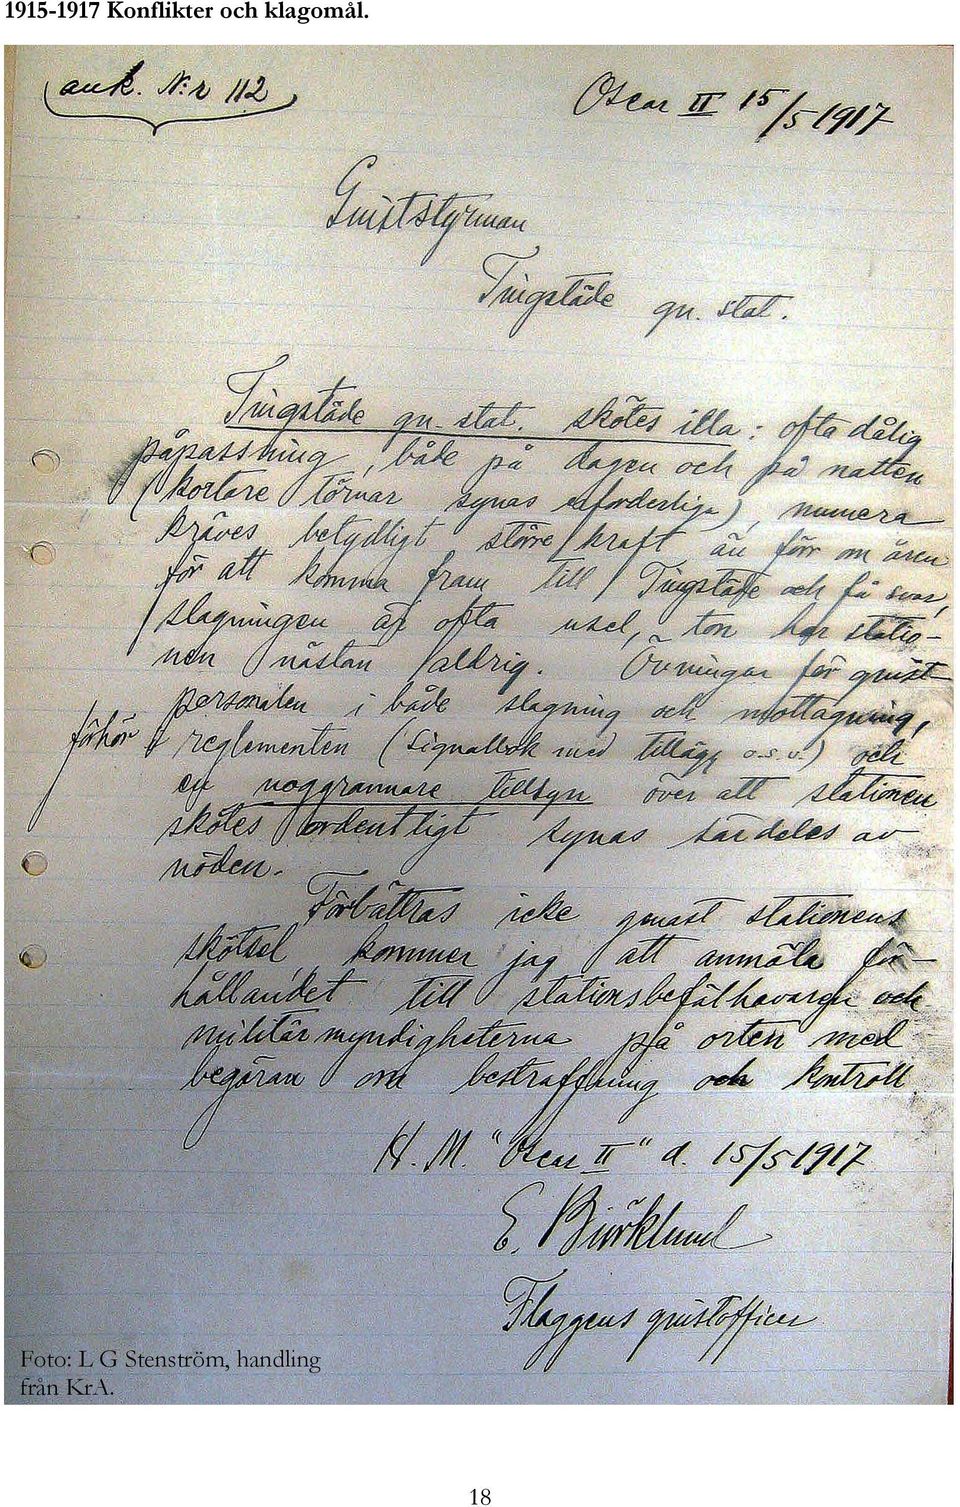 1915-1917 Konflikter och klagomål.
ank. N:r 112
Oscar II 15/5 1917
Gniststyrman
Tingstäde gn. stat.
Tingstäde gn. stat. skötes illa: ofta dålig
påpassning, både på dagen och på natten
(kortare törnar synas erforderliga), numera
kräves betydligt större kraft än förr om åren
för att komma fram till Tingstäde och få svar,
slagningen är ofta usel, ton har statio-
nen nästan aldrig. Övningar för gnist-
personalen i både slagning och mottagning,
förhör i reglementen (signalbok med tillägg o.s.v.) och
en noggrannare tillsyn över att stationen
skötes ordentligt synas särdeles av
nöden.
Förbättras icke genast stationens
skötsel, kommer jag att anmäla för-
hållandet till stationsbefälhavaren och
militärmyndigheterna på orten med
begäran om bestraffning och kontroll.
H. M. "Oscar II" d. 15/5 1917
E. Björklund
Flaggens gnistofficer
Foto: L G Stenström, handling
från KrA.
18